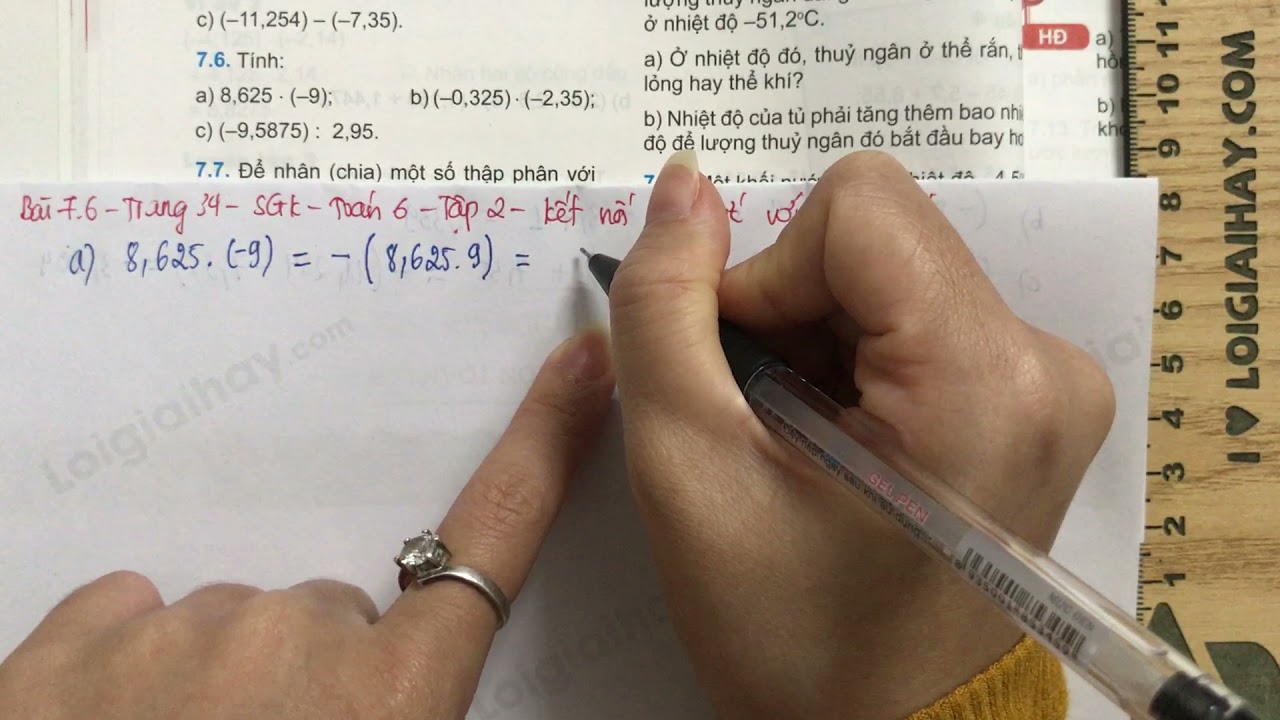 c) (–11,254) – (–7,35).
7.6. Tính:
a) 8,625 · (–9); b) (–0,325) · (–2,35);
c) (–9,5875) : 2,95.
7.7. Để nhân (chia) một số thập phân với
lượng thuỷ ngân
ở nhiệt độ –51,2°C.
a) Ở nhiệt độ đó, thuỷ ngân ở thể rắn,
lỏng hay thể khí?
b) Nhiệt độ của tủ phải tăng thêm bao
độ để lượng thuỷ ngân đó bắt đầu bay
HĐ
a)
b)
Bài 7.6 – Trang 34 – SGK – Toán 6 – Tập 2 – Kết nối
a) 8,625. (-9) = - (8,625. 9) =
Loigiaihay.com
GEL PEN
I ♥ LOIGIAIHAY.COM
11
10
9
8
7
6
5
4
3
2
1